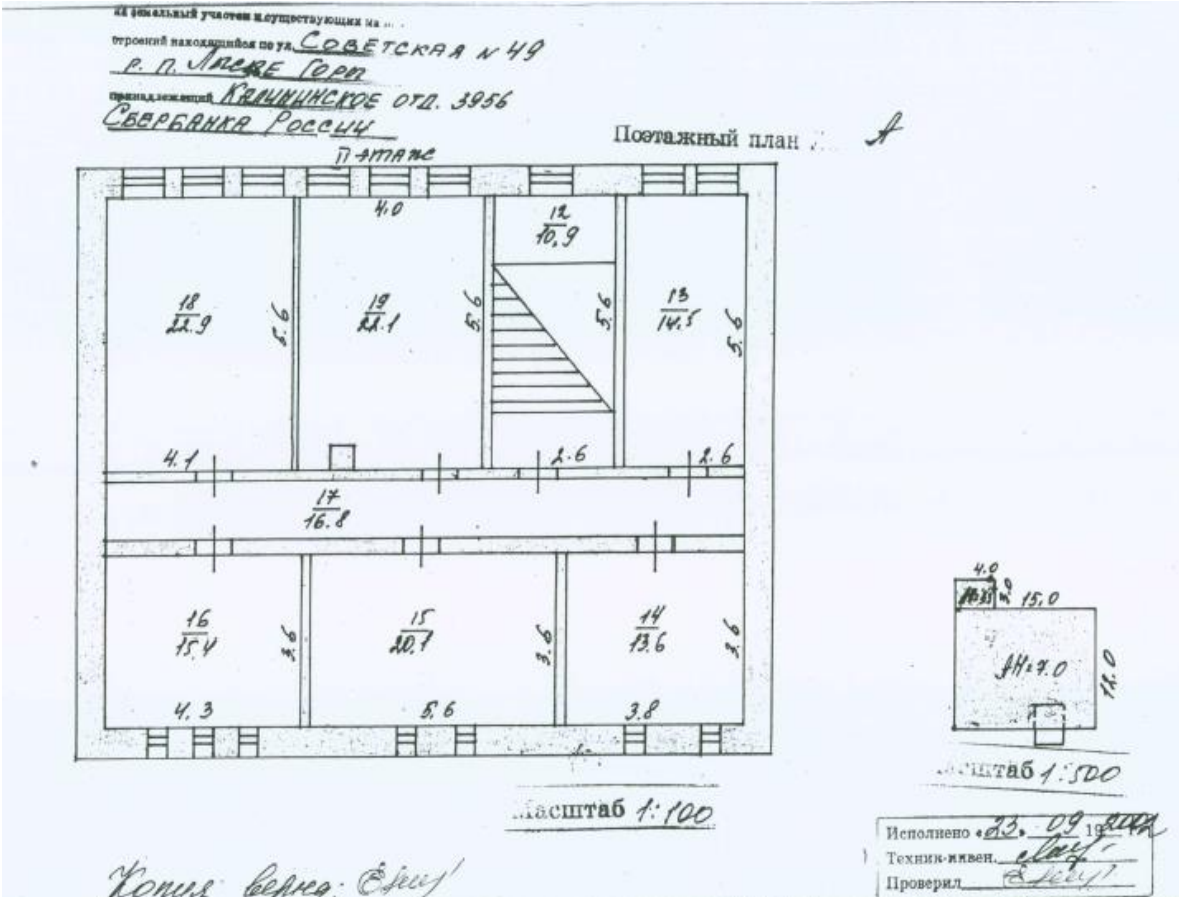 земельный участок и существующих на
строений находящийся по ул. СОВЕТСКАЯ N 49
р. п. ЛЫСЫЕ ГОРЫ
принадлежащий КАЛИНИНСКОЕ ОТД. 3956
СБЕРБАНКА РОССИИ
Поэтажный план А
II этаж
4.0
12
10.9
18
22.9
5.6
19
22.1
5.6
5.6
13
14.5
5.6
4.1
2.6
2.6
17
16.8
16
15.4
3.6
15
20.1
3.6
14
13.6
3.6
4.3
5.6
3.8
4.0
3.0
15.0
АН=7.0
12.0
Масштаб 1:500
Масштаб 1:100
Исполнено «23» 09 19 2002
Техник-инвен.
Проверил
Копия верна: